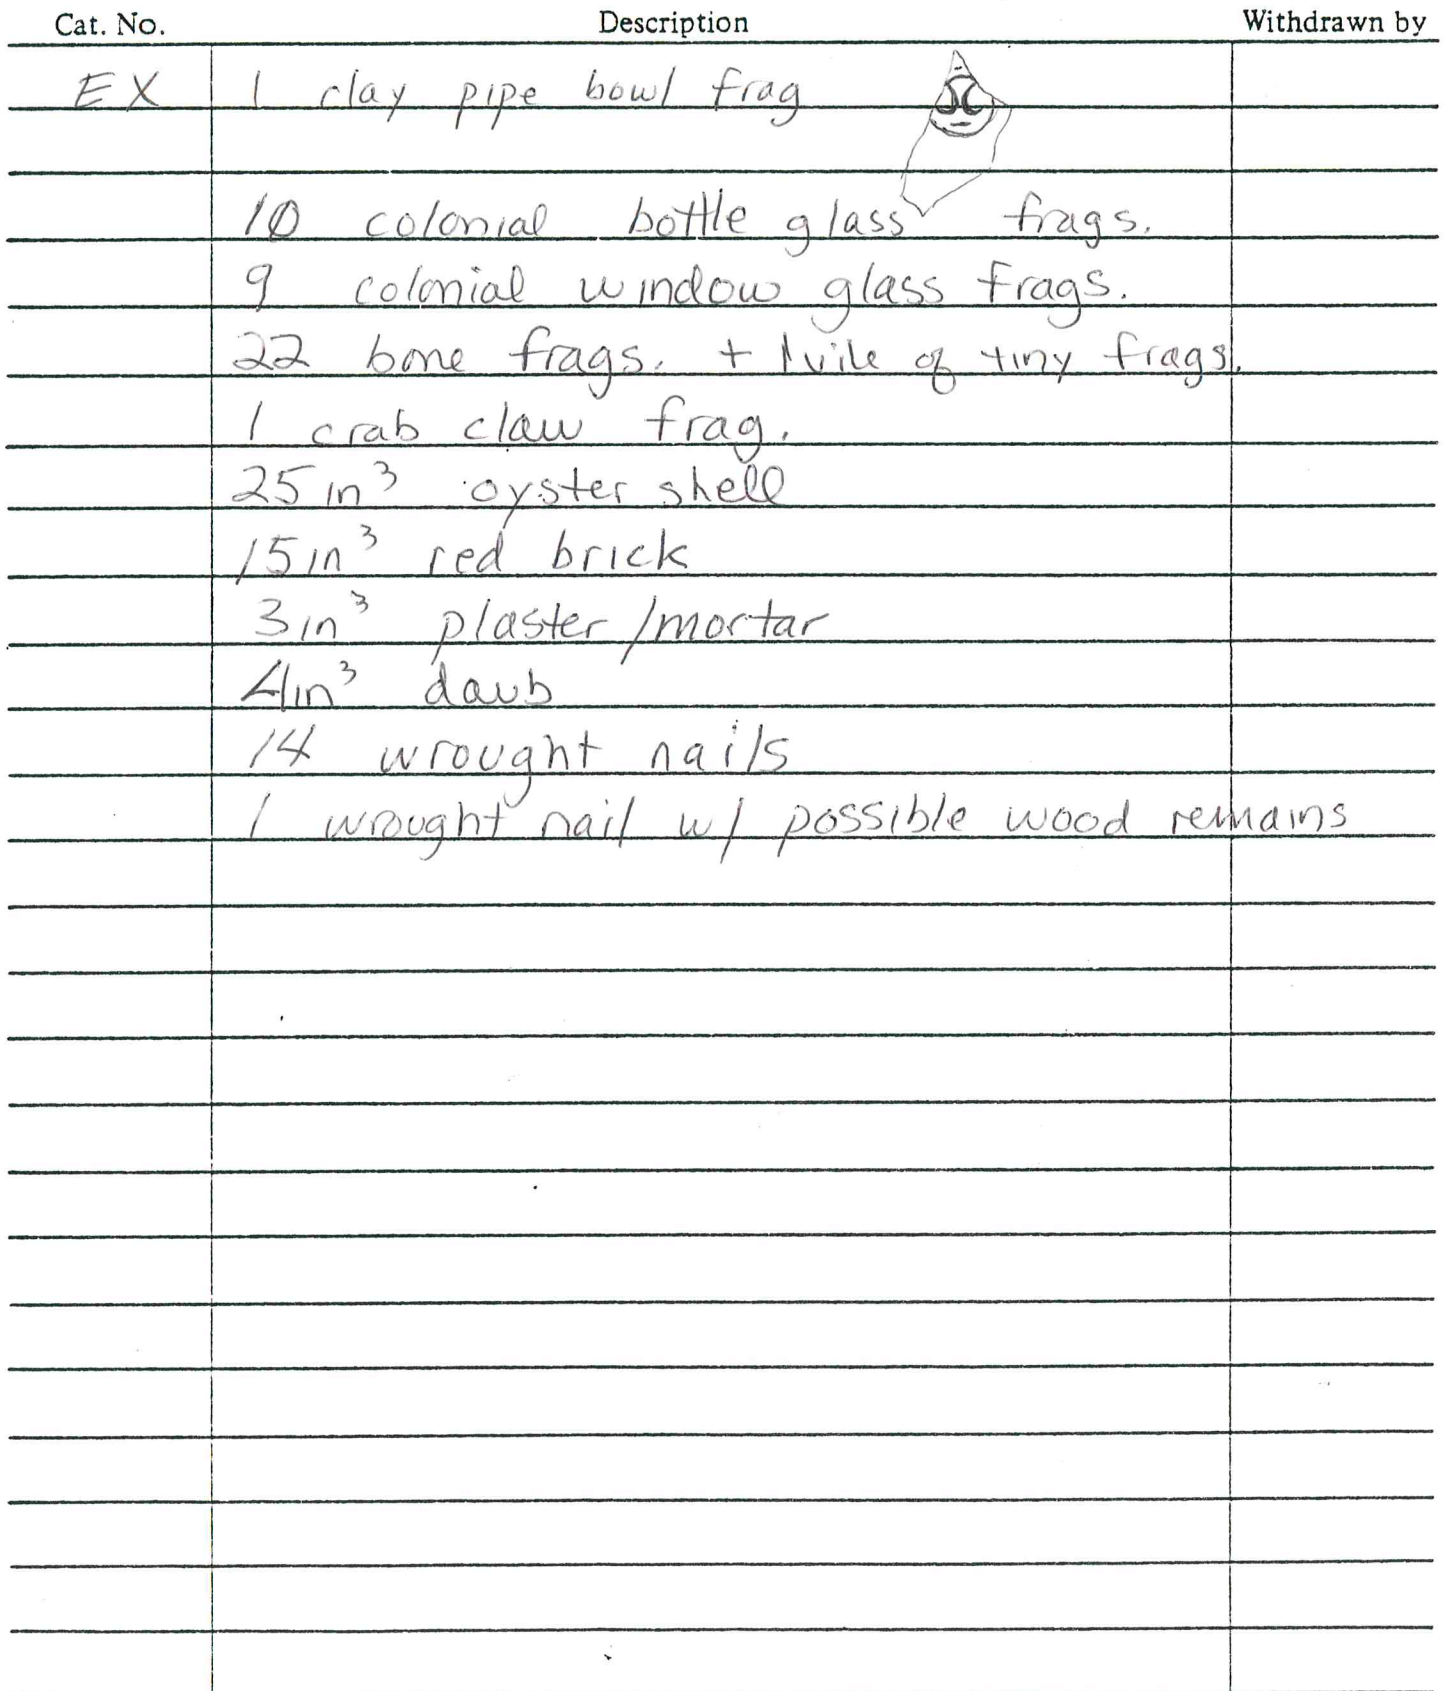 Cat. No. Description Withdrawn by
EX 1 clay pipe bowl frag
10 colonial bottle glass frags.
9 colonial window glass frags.
22 bone frags. + 1 vile of tiny frags.
1 crab claw frag.
25 in³ oyster shell
15 in³ red brick
3 in³ plaster/mortar
4 in³ daub
14 wrought nails
1 wrought nail w/ possible wood remains